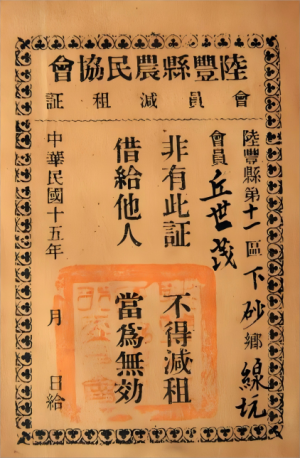 陸豐縣農民協會
會員減租証
陸豐縣第十一區下砂鄉線坑
會員丘世茂
非有此証 不得減租
借給他人 當為無効
中華民國十五年 月 日給